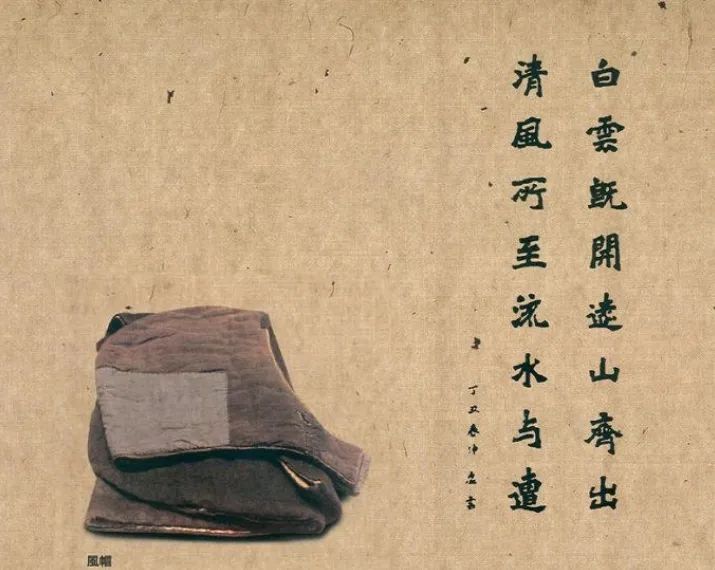 白雲既開遠山齊出
清風所至流水与遭
丁丑春沖
風帽